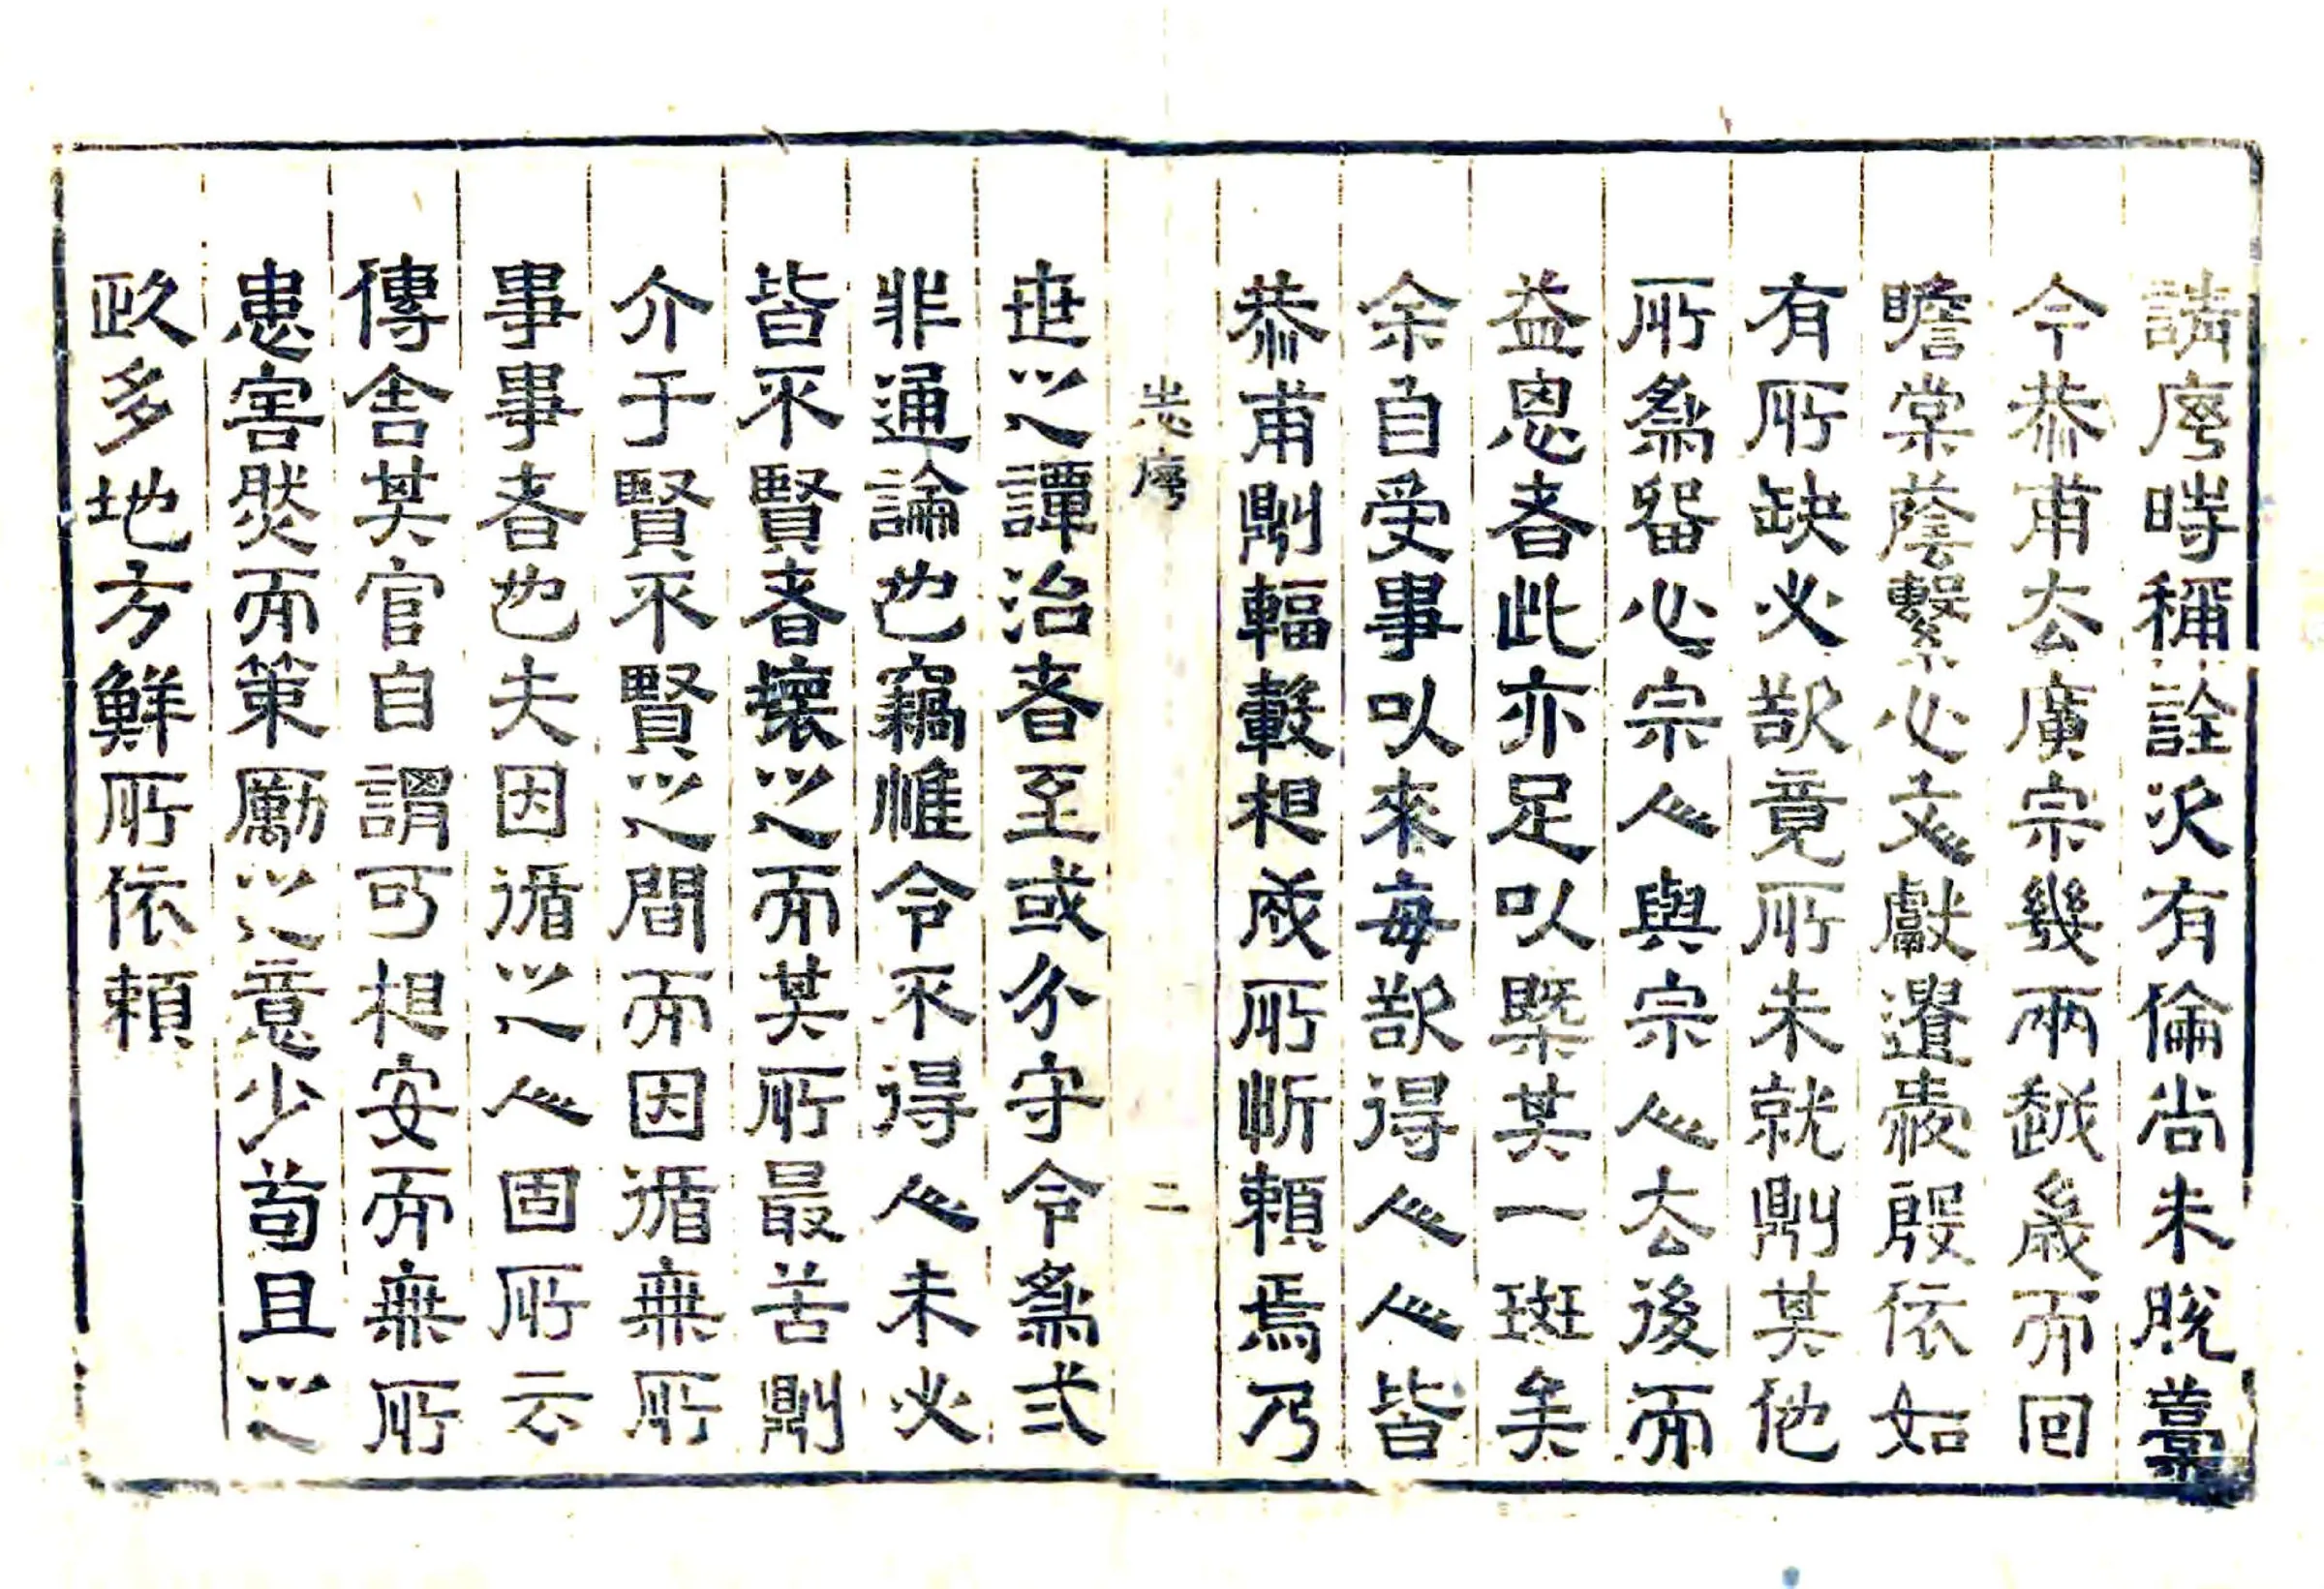 請序時稱詮次有倫尚未脫藁
今恭甫去廣宗幾兩越歲而回
瞻棠蔭繫心文獻遺愛殷依如
有所缺必欲竟所未就則其他
所為留心宗人與宗人去後而
益思者此亦足以槩其一斑矣
余自受事以來每欲得人人皆
恭甫則輻轂相成所忻賴焉乃
志序
二
世之譚治者至或分守令為弍
非通論也竊惟令不得人未必
皆不賢者壞之而其所最苦則
介于賢不賢之間而因循無所
事事者也夫因循之人固所云
傳舍其官自謂可相安而無所
患害然而策勵之意少苟且之
政多地方鮮所依賴